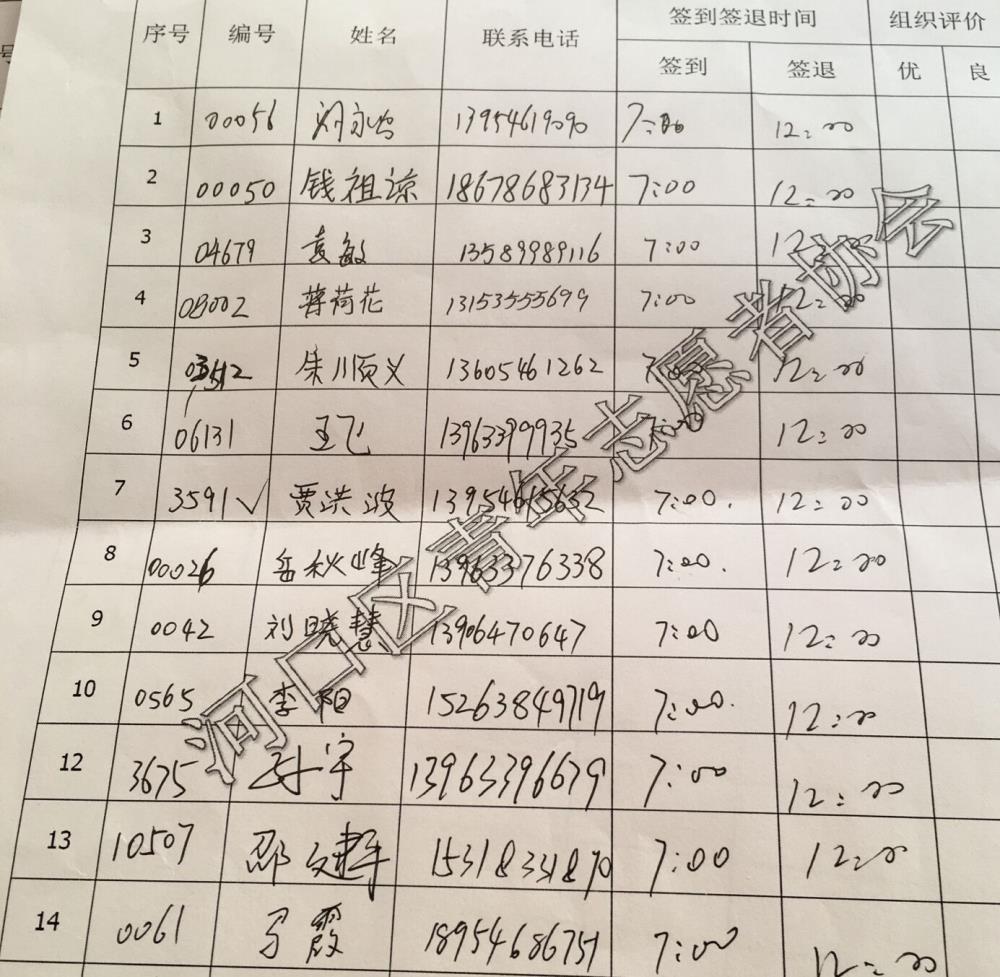 序号 编号 姓名 联系电话 签到签退时间 组织评价
签到 签退 优 良
1 00056 刘永 13954619090 7:00 12:00
2 00050 钱祖谅 18678683134 7:00 12:00
3 04679 袁敏 13589989116 7:00 12:00
4 08002 薄荷花 13153555699 7:00 12:00
5 03512 朱顺义 13605461262 7:00 12:00
6 06131 王飞 13963399935 7:00 12:00
7 3591√ 贾洪波 13954615632 7:00. 12:00
8 00026 岳秋峰 13963376338 7:00. 12:00
9 0042 刘晓慧 13906470647 7:00 12:00
10 0565 李阳 15263849719 7:00. 12:00
12 3675 孙宇 13963396679 7:00 12:00
13 10507 邵文建军 15318351870 7:00 12:00
14 0061 马霞 18954686751 7:00 12:00
河口区青年志愿者协会